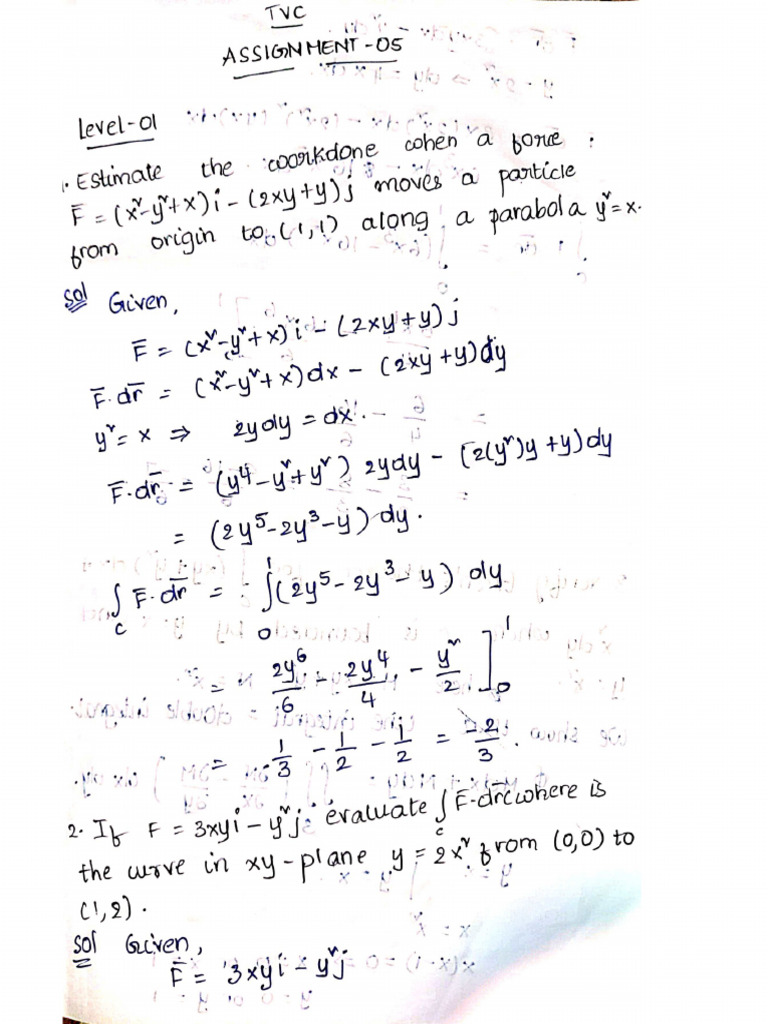 TVC
ASSIGNMENT-05
Level-01
1. Estimate the workdone when a force
F̄ = (x²-y²+x)i - (2xy+y)j moves a particle
from origin to (1,1) along a parabola y²=x.
Sol Given,
F̄ = (x²-y²+x)i - (2xy+y)j
F̄·dr̄ = (x²-y²+x)dx - (2xy+y)dy
y²=x ⇒ 2ydy = dx
F̄·dr̄ = (y⁴-y²+y²) 2ydy - (2(y²)y+y)dy
= (2y⁵-2y³-y) dy.
∫_C F̄·dr̄ = ∫₀¹ (2y⁵-2y³-y) dy
= 2y⁶/6 - 2y⁴/4 - y²/2 ]₀¹
= 1/3 - 1/2 - 1/2 = -2/3.
2. If F = 3xyi - y²j evaluate ∫_C F̄·dr̄ where is
the curve in xy-plane y = 2x² from (0,0) to
(1,2).
Sol Given,
F̄ = 3xyi - y²j